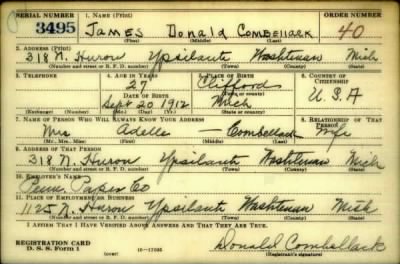 SERIAL NUMBER 1. NAME (Print) ORDER NUMBER
3495 JAMES Donald COMBELLACK 40
(First) (Middle) (Last)
2. ADDRESS (Print)
318 N. Huron Ypsilanti Washtenaw Mich
(Number and street or R. F. D. number) (Town) (County) (State)
3. TELEPHONE 4. AGE IN YEARS 5. PLACE OF BIRTH 6. COUNTRY OF CITIZENSHIP
27 Clifford
DATE OF BIRTH (Town or county)
Sept 20 1912 Mich U.S.A
(Exchange) (Number) (Mo.) (Day) (Yr.) (State or country)
7. NAME OF PERSON WHO WILL ALWAYS KNOW YOUR ADDRESS 8. RELATIONSHIP OF THAT PERSON
Mrs Adelle — Combellack Wife
(Mr., Mrs., Miss) (First) (Middle) (Last)
9. ADDRESS OF THAT PERSON
318 N. Huron Ypsilanti Washtenaw Mich
(Number and street or R. F. D. number) (Town) (County) (State)
10. EMPLOYER'S NAME
Paper Co
11. PLACE OF EMPLOYMENT OR BUSINESS
1125 N. Huron Ypsilanti Washtenaw Mich
(Number and street or R. F. D. number) (Town) (County) (State)
I AFFIRM THAT I HAVE VERIFIED ABOVE ANSWERS AND THAT THEY ARE TRUE.
REGISTRATION CARD
D. S. S. Form 1 (over) Donald Combellack
(Registrant's signature)